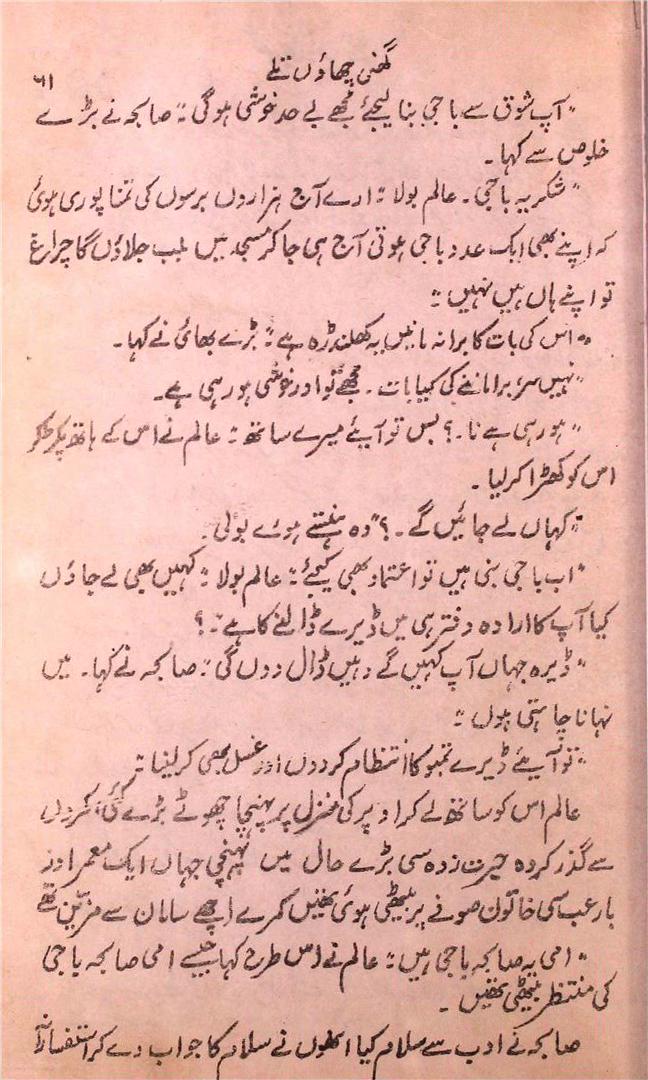 گھنی چھاؤں تلے
۶۱
"آپ شوق سے باجی بنا لیجئے مجھے بے حد خوشی ہوگی" صابحہ نے بڑے
خلوص سے کہا۔
"شکریہ باجی۔ عالم بولا "ارے آج ہزاروں برسوں کی تمنا پوری ہوئی
کہ اپنے بھی ایک عدد باجی ہوتی آج ہی جا کر مسجد میں بلب جلاؤں گا چراغ
تو اپنے ہاں ہیں نہیں"
"اس کی بات کا برا نہ مانیں یہ کھلنڈرہ ہے" بڑے بھائی نے کہا۔
"نہیں سر برا ماننے کی کیا بات۔ مجھے تو اور خوشی ہو رہی ہے۔
"ہو رہی ہے نا۔؟ بس تو آیئے میرے ساتھ" عالم نے اس کے ہاتھ پکڑ کر
اس کو کھڑا کر لیا۔
"کہاں لے جائیں گے۔؟" وہ ہنستے ہوئے بولی۔
"اب باجی بنی ہیں تو اعتماد بھی کیجئے" عالم بولا "کہیں بھی لے جاؤں
کیا آپ کا ارادہ دفتر ہی میں ڈیرے ڈالنے کا ہے"۔؟
"ڈیرہ جہاں آپ کہیں گے وہیں ڈال دوں گی" صابحہ نے کہا۔ میں
نہانا چاہتی ہوں"
"تو آیئے ڈیرے تمبو کا انتظام کر دوں اور غسل بھی کر لینا"
عالم اس کو ساتھ لے کر اوپر کی منزل پر پہنچا چھوٹے بڑے کئی کمروں
سے گذر کر وہ حیرت زدہ سی بڑے حال میں پہنچی جہاں ایک معمر اور
بارعب سی خاتون صوفے پر بیٹھی ہوئی تھیں کمرے اچھے سامان سے مزیّن تھے
"امی یہ صابحہ باجی ہیں" عالم نے اس طرح کہا جیسے امی صابحہ باجی
کی منتظر بیٹھی تھیں۔
صابحہ نے ادب سے سلام کیا انھوں نے سلام کا جواب دے کر استفساراً